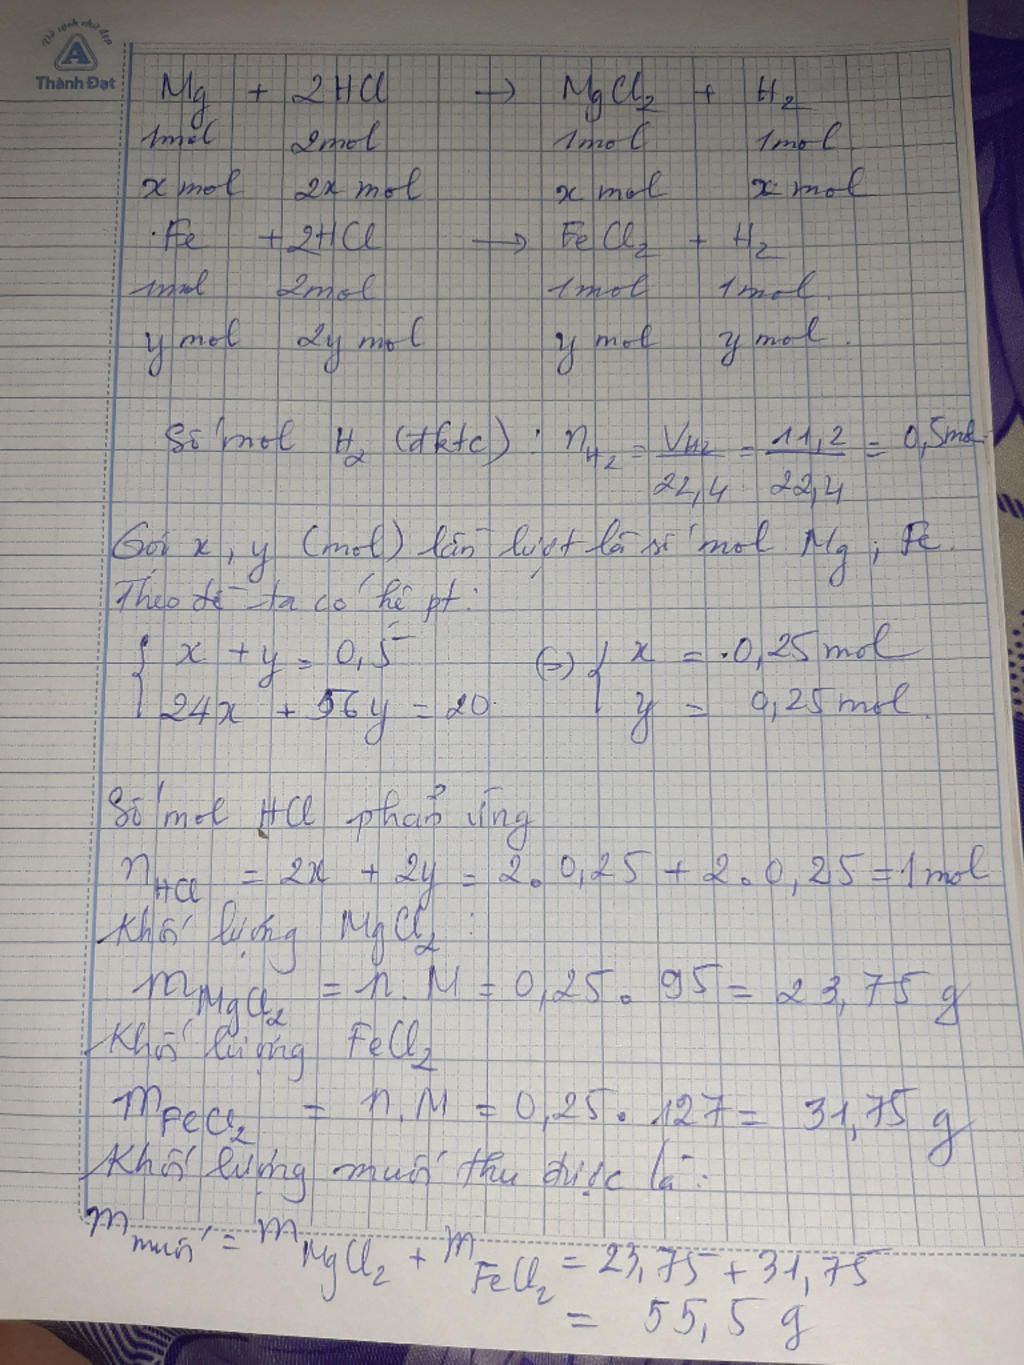 Vở sạch chữ đẹp
Thành Đạt
Mg + 2HCl → MgCl2 + H2
1mol 2mol 1mol 1mol
x mol 2x mol x mol x mol
Fe + 2HCl → FeCl2 + H2
1mol 2mol 1mol 1mol.
y mol 2y mol y mol y mol.
Số mol H2 (đktc): nH2 = VH2/22,4 = 11,2/22,4 = 0,5mol
Gọi x, y (mol) lần lượt là số mol Mg; Fe.
Theo đề ta có hệ pt:
{ x + y = 0,5 (=) { x = 0,25 mol
24x + 56y = 20 y = 0,25 mol.
Số mol HCl phản ứng
nHCl = 2x + 2y = 2.0,25 + 2.0,25 = 1 mol
Khối lượng MgCl2:
mMgCl2 = n.M = 0,25.95 = 23,75 g
Khối lượng FeCl2
mFeCl2 = n.M = 0,25.127 = 31,75 g
Khối lượng muối thu được là:
mmuối = mMgCl2 + mFeCl2 = 23,75 + 31,75
= 55,5 g